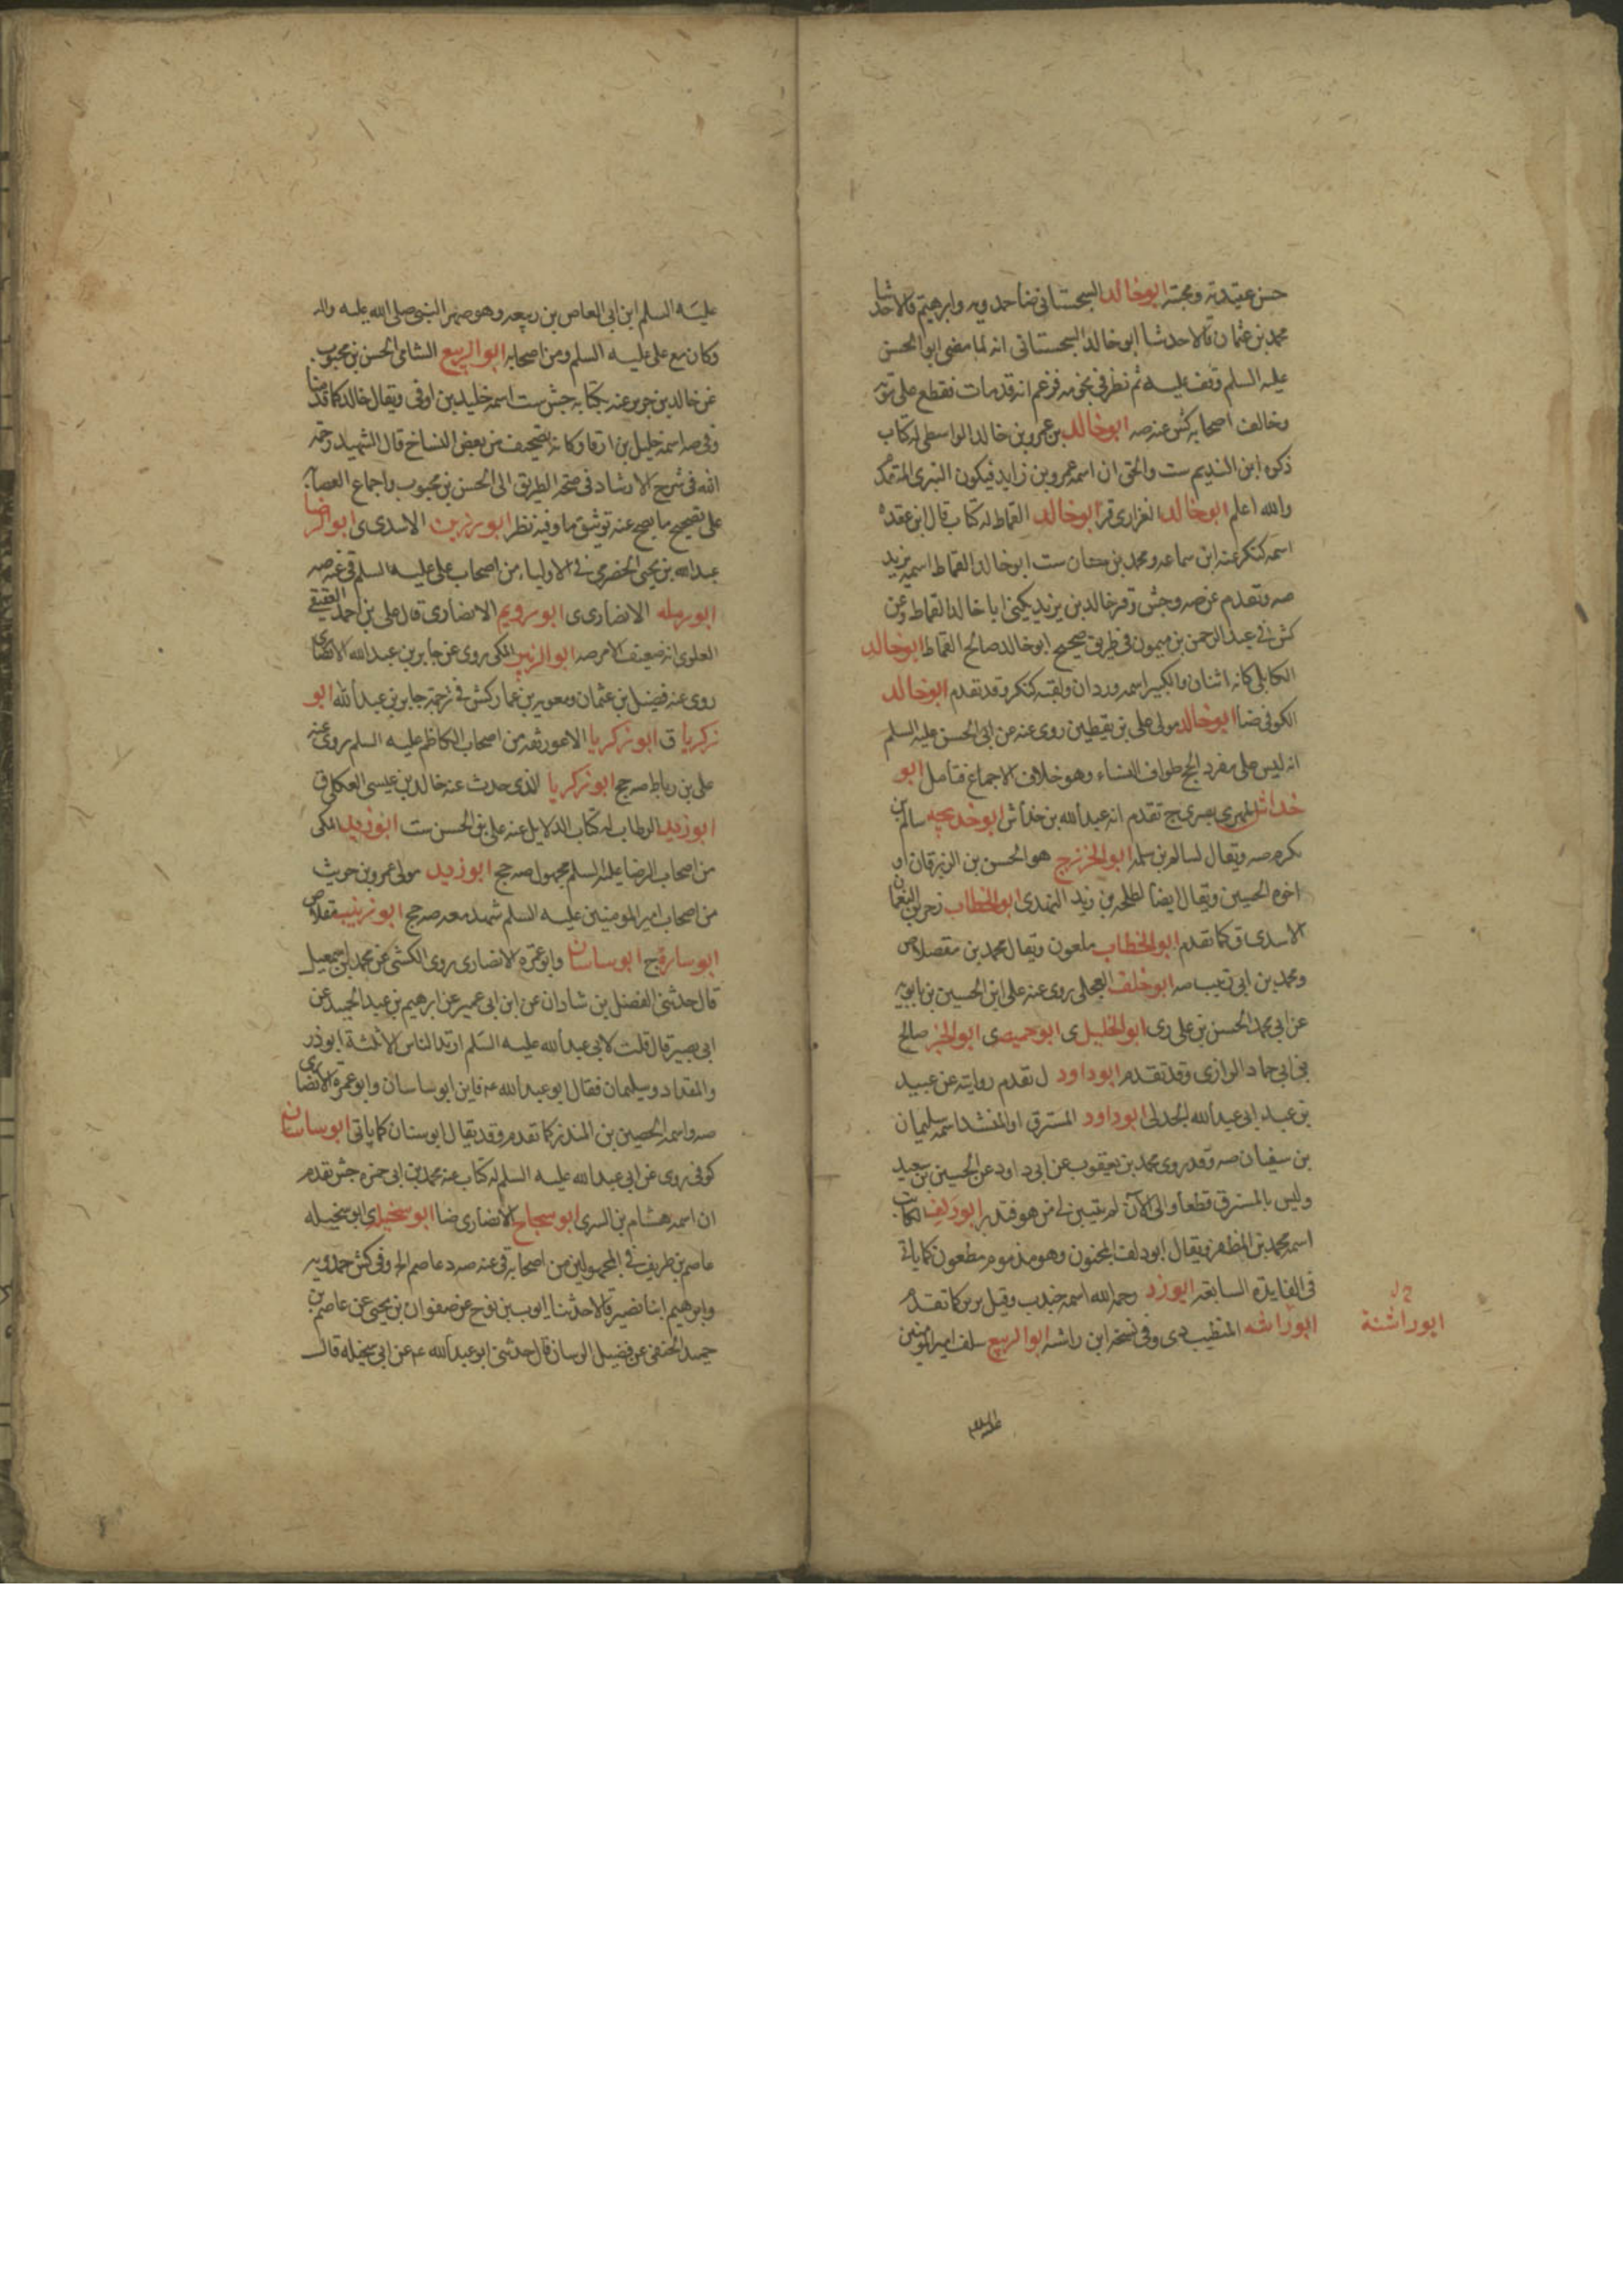 حسن عقيدته ومحبته ابوخالد السجستانى ضا حمدويه وابرهيم قالا حدثنا
محمد بن عثمان قالا حدثنا ابوخالد السجستانى انه لما مضى ابوالحسن
عليه السلم وقف عليه ثم نظر فى نجومه فزعم انه قدمات فقطع على موته
وخالف اصحابه كش عنه صه ابوخالد بن عمروبن خالد الواسطى له كتاب
ذكره ابن النديم ست والحق ان اسمه عمروبن فيكون
والله اعلم ابوخالد الفزارى قر ابوخالد القماط له كتاب قال ابن عقده
اسمه كنكر عنه ابن سماعه ومحمد بن سنان ست ابوخالد القماط اسمه يزيد
صه وتقدم عن صه وجش وقر خالد بن يزيد يكنى اباخالد القماط وعن
كش فى عبدالرحمن بن ميمون فى طريق صحيح ابوخالد صالح القماط ابوخالد
الكابلى كانه اثنان والكبير اسمه وردان ولقبه كنكر وقد تقدم ابوخالد
الكوفى ضا ابوخالد مولى على بن يقطين روى عنه عن ابى الحسن عليه السلم
انه ليس على مفرد الحج طواف النساء وهو خلاف الاجماع فتامل ابو
خداش المهرى بصرى ج تقدم انه عبدالله بن خداش ابوخديجه سالم بن
مكرم صه ويقال لسالم بن سلمه ابوالخزرج هو الحسن بن الزبرقان او
اخوه الحسين ويقال ايضا لطلحه بن زيد النهدى ابوالخطاب زحر بن النعمان
الاسدى ق كما تقدم ابوالخطاب ملعون ويقال محمد بن مقلاص
ومحمد بن ابى زينب صه ابوخلف العجلى روى عنه على ابن الحسين بن بابويه
عن ابى محمد الحسن بن على رى ابوالخليل ى ابوخميصه ى ابوالخير صالح
بن ابى حماد الرازى وقد تقدم ابوداود ل تقدم روايته عن عبيد
بن عبد ابى عبدالله الجدلى ابوداود المسترق او المنشد اسمه سليمان
بن سفيان صه وقد روى محمد بن يعقوب عن ابى داود عن الحسين بن سعيد
وليس بالمسترق قطعا والى الآن لم يتبين لى من هو فتدبر ابودلف الكاتب
اسمه محمد بن المظفر ويقال ابودلف المجنون وهو مذموم مطعون كما ياتى
فى الفايدة السابعة ابوذر رحمه الله اسمه جندب وقيل برير كما تقدم
ابوراشه المنظيب دى وفى نسخه ابن راشه ابوالربيع سلف اميرالمومنين
ابوراشنة
عليه السلم
عليه السلم ابن ابى العاص بن ربيعه وهو صهر النبى صلى الله عليه واله
وكان مع على عليه السلم ومن اصحابه ابوالربيع الشامى الحسن بن محبوب
عن خالد بن جرير عنه بكتابه جش ست اسمه خليد بن اوفى ويقال خالد كما قدمنا
وفى صه اسمه خليل بن اوفا وكانه تصحيف من بعض النساخ قال الشهيد رحمه
الله فى شرح الارشاد فى صحة الطريق الى الحسن بن محبوب واجماع العصابه
على تصحيح ما يصح عنه توثيق ما وفيه نظر ابورزين الاسدى ى ابوالرضا
عبدالله بن يحيى الحضرمى فى الاولياء من اصحاب على عليه السلم قى عنه صه
ابورمله الانصارى ى ابورويم الانصارى قال على بن احمد العقيقى
العلوى انه ضعيف الامر صه ابوالزبير المكى روى عن جابر بن عبدالله الانصارى
روى عنه فضيل بن عثمان ومعويه بن عمار كش فى ترجمة جابر بن عبدالله ابو
زكريا ق ابوزكريا الاعور ثقه من اصحاب الكاظم عليه السلم روى عنه
على بن رباط صه جج ابوزكريا الذى حدث عنه خالد بن عيسى العكلى ق
ابوزيد الرطاب له كتاب الدلايل عنه على بن الحسن ست ابوزيد المكى
من اصحاب الرضا عليه السلم مجهول صه جج ابوزيد مولى عمروبن حريث
من اصحاب اميرالمومنين عليه السلم شهد معه صه جج ابوزينب مقلاص
ابوسارة ج ابوساسان وابوعمره الانصارى روى الكشى عن محمد بن اسمعيل
قال حدثنى الفضل بن شاذان عن ابن ابى عمير عن ابرهيم بن عبدالحميد عن
ابى بصير قال قلت لابى عبدالله عليه السلم ارتد الناس الا ثلثة ابوذر
والمقداد وسليمان فقال ابوعبدالله عه فاين ابوساسان وابوعمرة الانصارى
صه واسمه الحصين بن المنذر كما تقدم وقد يقال ابوسنان كما ياتى ابوساسان
كوفى روى عن ابى عبدالله عليه السلم له كتاب عنه محمد بن ابى حمزه جش تقدم
ان اسمه هشام بن السرى ابوسجاح الانصارى ضا ابوسخيله ى ابوسخيله
عاصم بن طريف فى المجهولين من اصحابه قى عنه صه د عاصم الخ وفى كش حمدويه
وابرهيم ابنا نصير قالا حدثنا ايوب بن نوح عن صفوان بن يحيى عن عاصم بن
حميد الحنفى عن فضيل الرسان قال حدثنى ابوعبدالله عه عن ابى سخيله قال